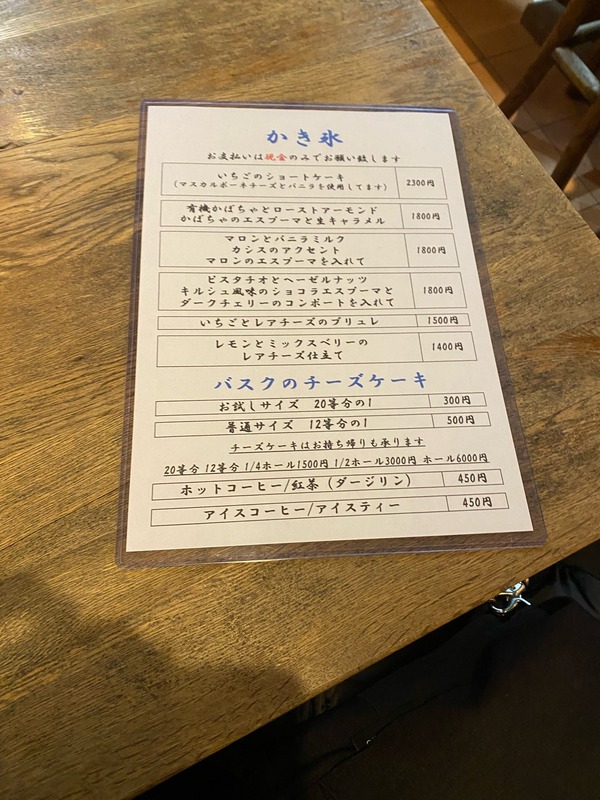 かき氷
お支払いは現金のみでお願い致します
いちごのショートケーキ
(マスカルポーネチーズとバニラを使用してます)
2300円
有機かぼちゃとローストアーモンド
かぼちゃのエスプーマと生キャラメル
1800円
マロンとバニラミルク
カシスのアクセント
マロンのエスプーマを入れて
1800円
ピスタチオとヘーゼルナッツ
キルシュ風味のショコラエスプーマと
ダークチェリーのコンポートを入れて
1800円
いちごとレアチーズのブリュレ 1500円
レモンとミックスベリーの
レアチーズ仕立て
1400円
バスクのチーズケーキ
お試しサイズ 20等分の1 300円
普通サイズ 12等分の1 500円
チーズケーキはお持ち帰りも承ります
20等分 12等分 1/4ホール1500円 1/2ホール3000円 ホール6000円
ホットコーヒー/紅茶（ダージリン） 450円
アイスコーヒー/アイスティー 450円